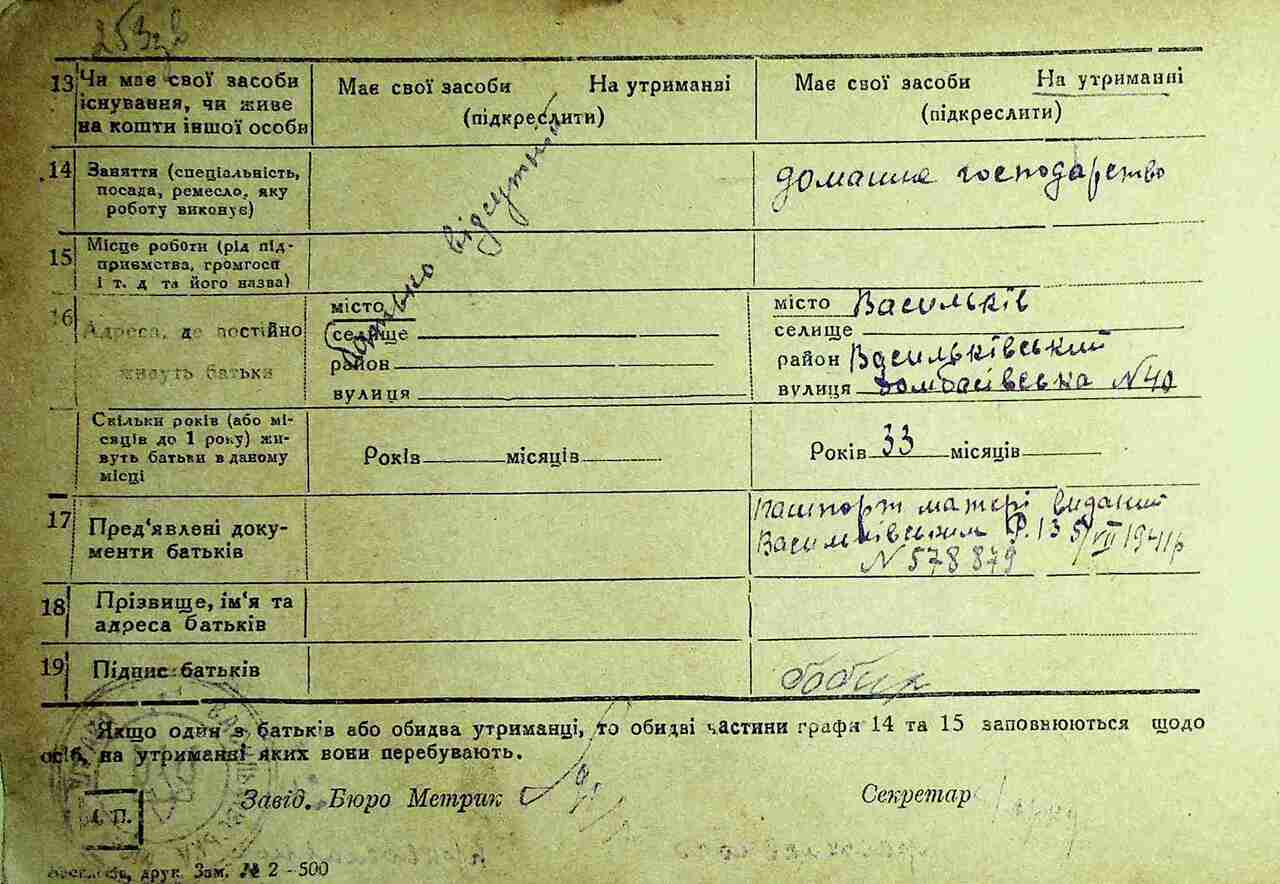 13 Чи має свої засоби існування, чи живе на кошти іншої особи
Має свої засоби На утриманні
(підкреслити)
Має свої засоби На утриманні
(підкреслити)
батько відсутній
14 Заняття (спеціальність, посада, ремесло, яку роботу виконує)
домашнє господарство
15 Місце роботи (рід підприємства, громгосп і т. д та його назва)
16 Адреса, де постійно живуть батьки
місто
селище
район
вулиця
місто Васильків
селище
район Васильківський
вулиця Домбасівська N 40
Скільки років (або місяців до 1 року) живуть батьки в даному місці
Років місяців
Років 33 місяців
17 Пред'явлені документи батьків
паспорт матері виданий
Васильківським Р. 13 5/VII 1941р
N 578879
18 Прізвище, ім'я та адреса батьків
19 Підпис батьків
Бобир
Якщо один з батьків або обидва утриманці, то обидві частини графи 14 та 15 заповнюються щодо
осіб, на утриманні яких вони перебувають.
Завід. Бюро Метрик
Секретар
М. П.
друк. Зам. № 2 - 500